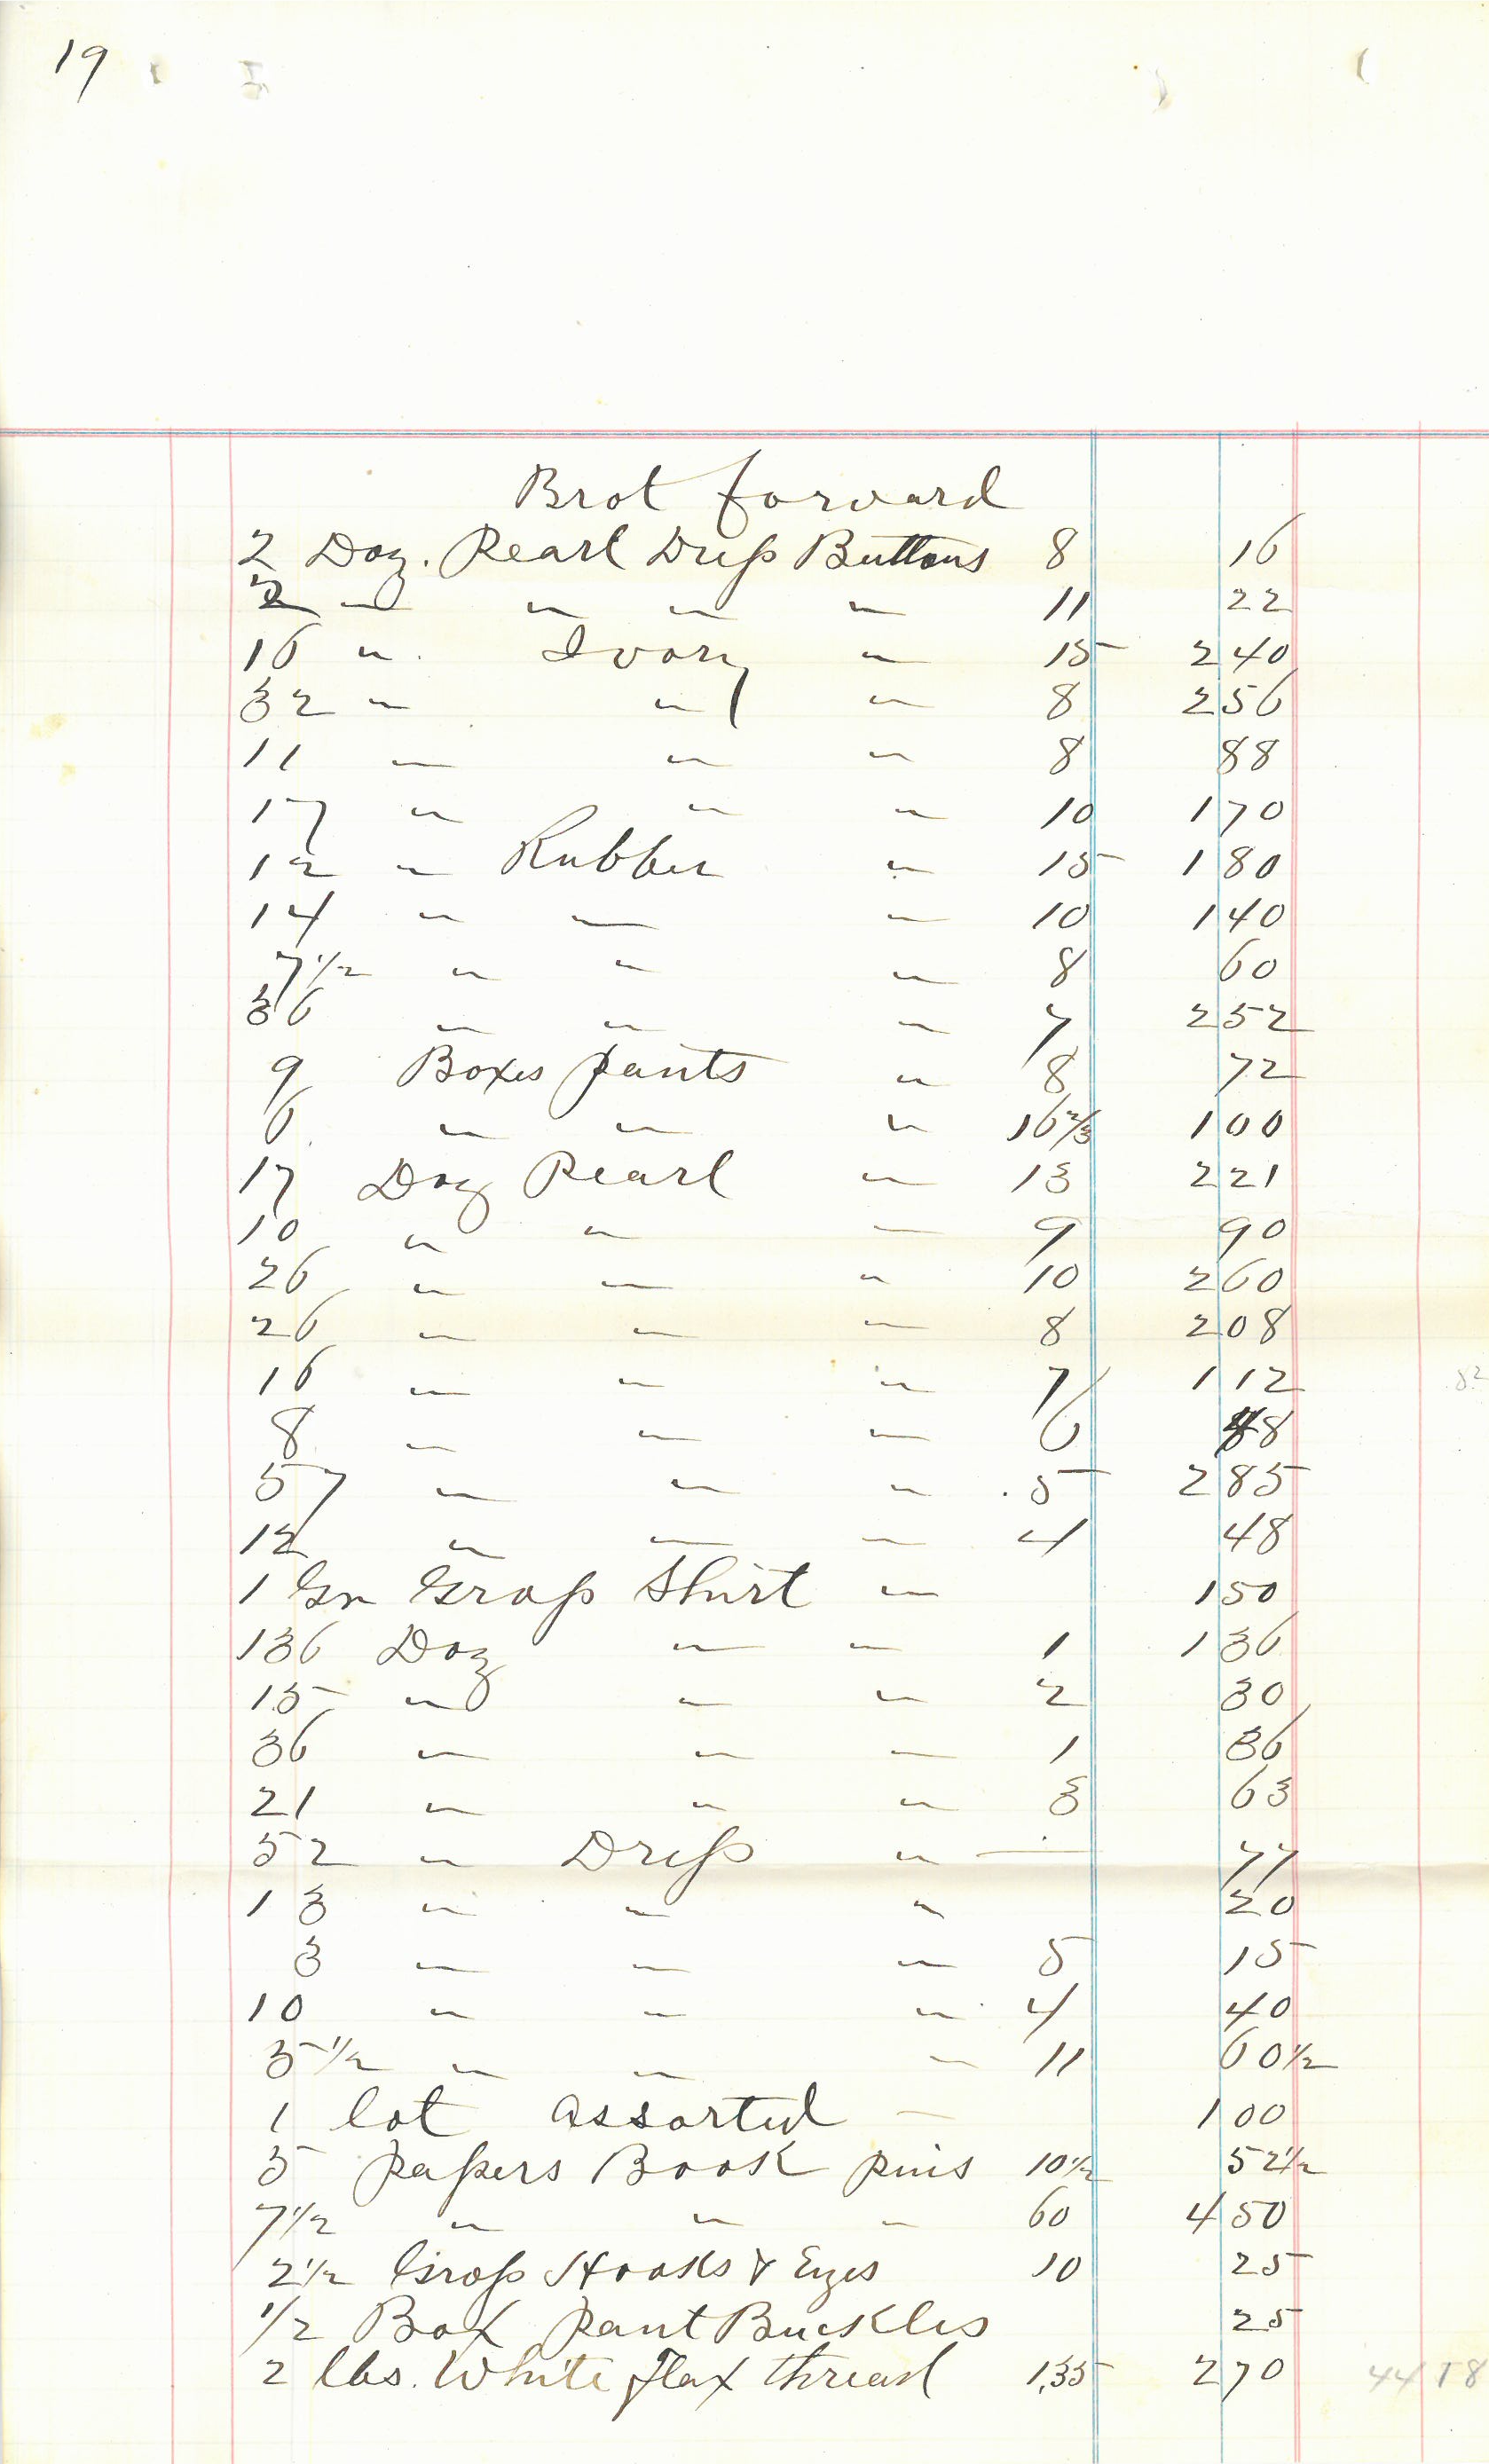 19
Brot forward
2 Doz. Pearl Dress Buttons 8 16
2 " " " " 11 22
16 " Ivory " 15 2 40
32 " " " 8 2 56
11 " " " 8 88
17 " " " 10 1 70
12 " Rubber " 15 1 80
14 " " " 10 1 40
7 1/2 " " " 8 60
36 " " " 7 2 52
9 Boxes pants " 8 72
6 " " " 16 2/3 1 00
17 Doz Pearl " 13 2 21
10 " " " 9 90
26 " " " 10 2 60
26 " " " 8 2 08
16 " " " 7 1 12
8 " " " 6 48
57 " " " 5 2 85
12 " " " 4 48
1 Gr Gross Shirt " 1 50
136 Doz " " 1 1 36
15 " " " 2 30
36 " " " 1 36
21 " " " 3 63
52 " Dress " — 77
13 " " " 20
3 " " " 5 15
10 " " " 4 40
5 1/2 " " " 11 60 1/2
1 lot assorted " 1 00
5 papers Book pins 10 1/2 52 1/2
7 1/2 " " " 60 4 50
2 1/2 Gross Hooks & Eyes 10 25
1/2 Box pant Buckles 25
2 lbs. White flax thread 1,35 2 70 44 18